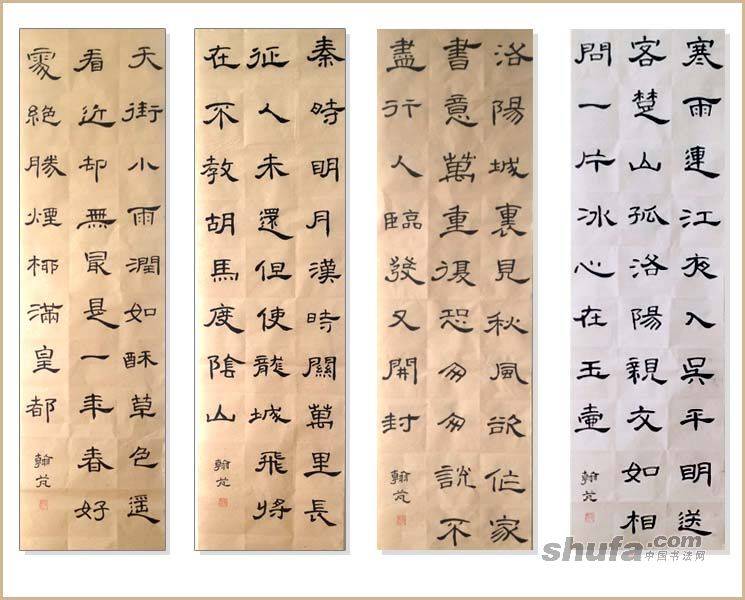 寒雨連江夜入吳平明送
客楚山孤洛陽親友如相
問一片冰心在玉壺
翰芃
洛陽城裏見秋風欲作家
書意萬重復恐匆匆說不
盡行人臨發又開封
翰芃
秦時明月漢時關萬里長
征人未還但使龍城飛將
在不教胡馬度陰山
翰芃
天街小雨潤如酥草色遥
看近却無最是一年春好
處絶勝煙柳滿皇都
翰芃
shufa.com
中国书法网